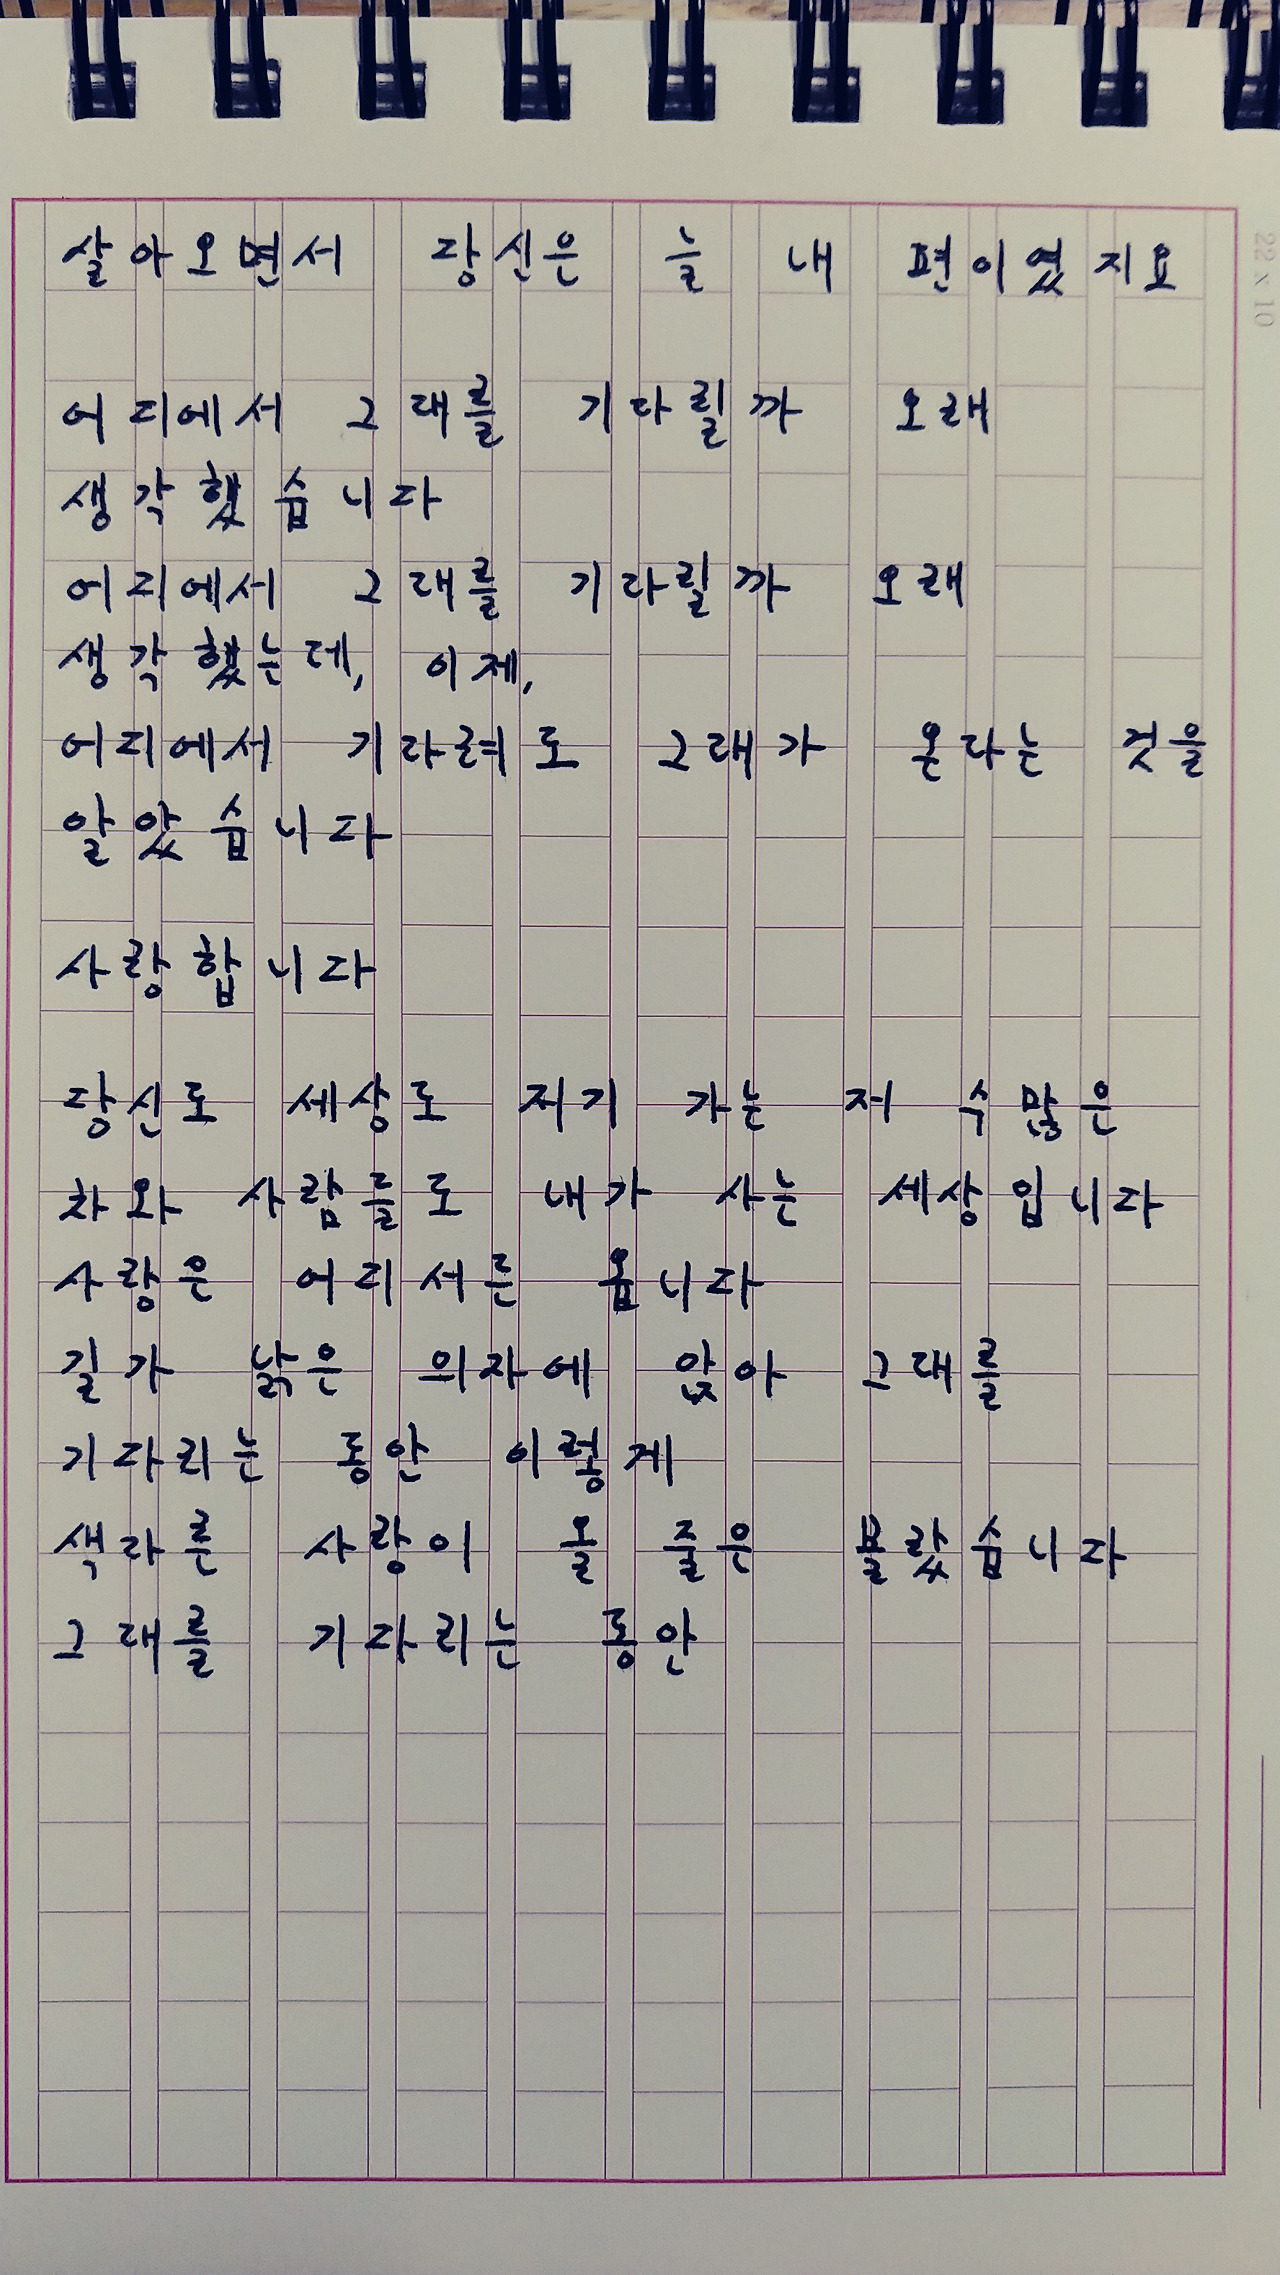 살아오면서 당신은 늘 내 편이였지요
어디에서 그대를 기다릴까 오래
생각했습니다
어디에서 그대를 기다릴까 오래
생각했는데, 이제,
어디에서 기다려도 그대가 온다는 것을
알았습니다
사랑합니다
당신도 세상도 저기 가는 저 수많은
차와 사람들도 내가 사는 세상입니다
사랑은 어디서든 옵니다
길가 낡은 의자에 앉아 그대를
기다리는 동안 이렇게
색다른 사랑이 올 줄은 몰랐습니다
그대를 기다리는 동안
22 x 10